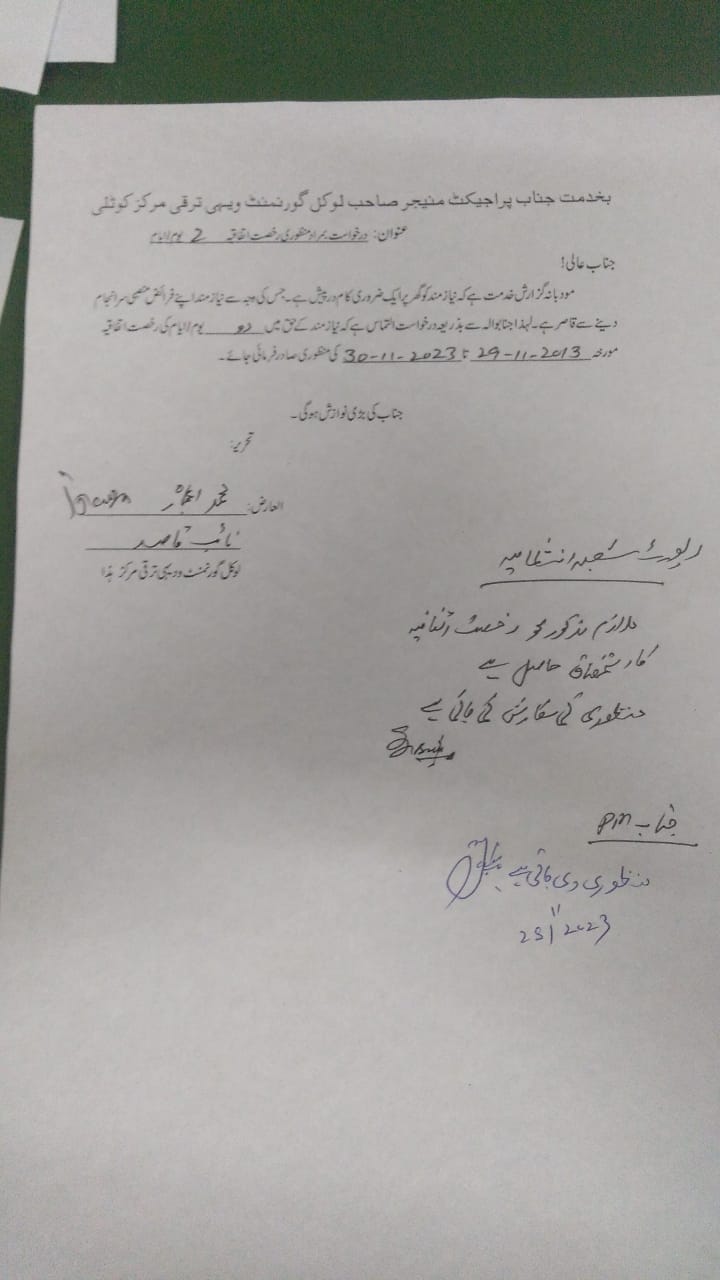 بخدمت جناب پراجیکٹ منیجر صاحب لوکل گورنمنٹ ویہی ترقی مرکز کوٹلی
عنوان: درخواست بمراد منظوری رخصت اتفاقیہ 2 یوم/ایام
جناب عالی!
مودبانہ گزارش خدمت ہے کہ نیازمند کو گھر پر ایک ضروری کام درپیش ہے۔ جس کی وجہ سے نیازمند اپنے فرائض منصبی سرانجام
دینے سے قاصر ہے۔ لہذا جنابوالہ سے بذریعہ درخواست التماس ہے کہ نیازمند کے حق میں دو یوم/ایام کی رخصت اتفاقیہ
مورخہ 29-11-2013 تا 30-11-2023 کی منظوری صادر فرمائی جائے۔
جناب کی بڑی نوازش ہوگی۔
تحریر:
العارض: محمد
نائب قاصد
لوکل گورنمنٹ و دیہی ترقی مرکز ہذا
رپورٹ شعبہ انتظامیہ
ملازم مذکور کو رخصت اتفاقیہ
کا استحقاق حاصل ہے
منظوری کی سفارش کی جاتی ہے
جناب PM
منظوری دی جاتی ہے